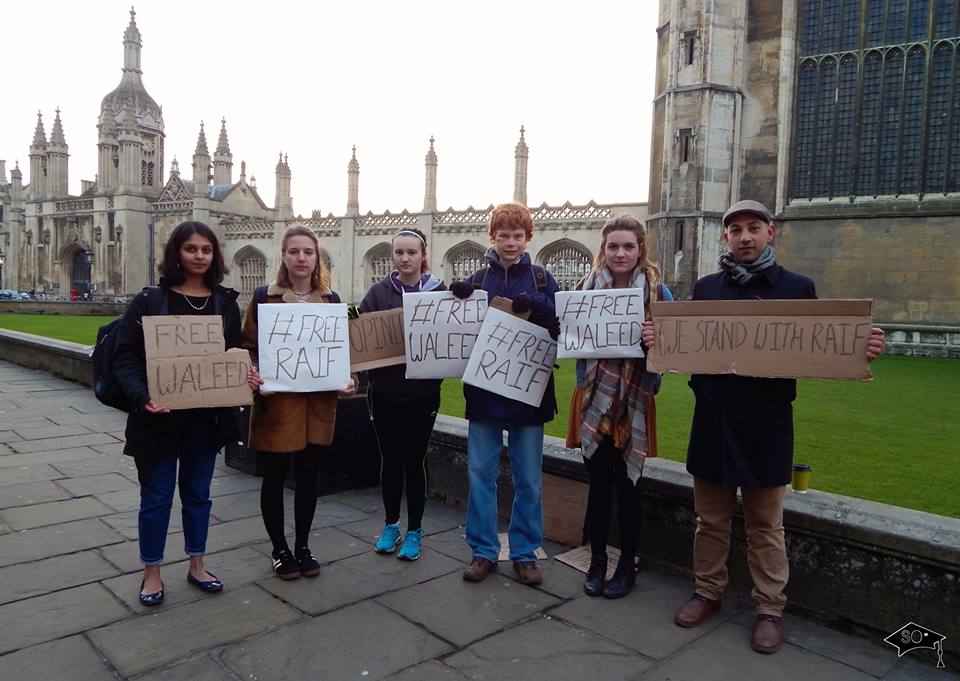 FREE
WALEED
#FREE
RAIF
OPINI
#FREE
WALEED
#FREE
RAIF
#FREE
WALEED
WE STAND WITH RAIF
SO